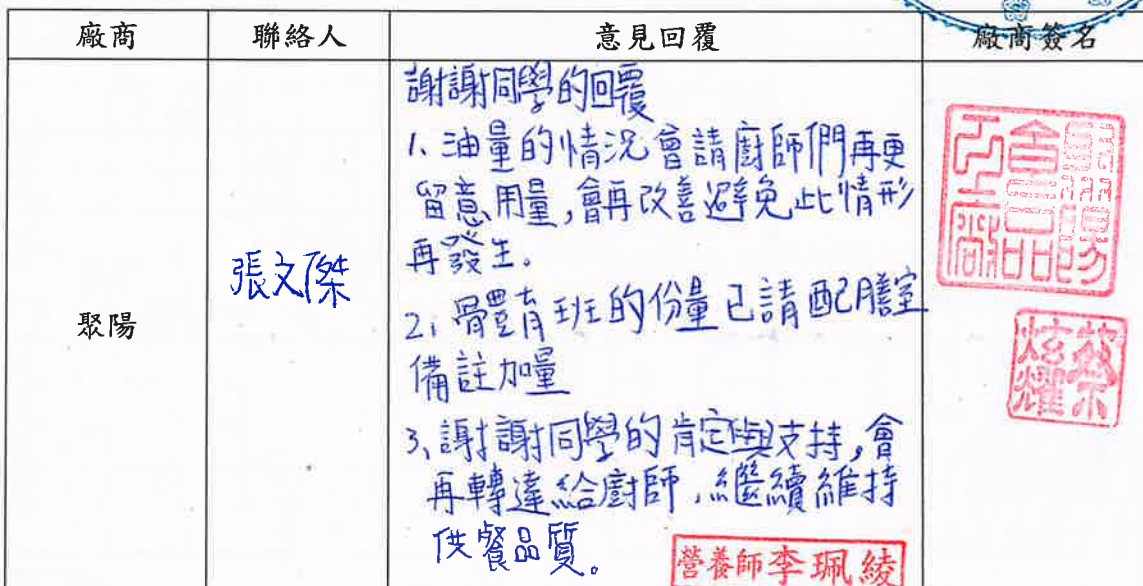 廠商 聯絡人 意見回覆 廠商簽名
聚陽
張文傑
謝謝同學的回覆
1、油量的情況會請廚師們再更
留意用量,會再改善避免此情形
再發生。
2、體育班的份量已請配膳室
備註加量
3、謝謝同學的肯定與支持,會
再轉達給廚師,繼續維持
供餐品質。
營養師李珮綾
聚陽
食品
工廠
蔡
炫耀